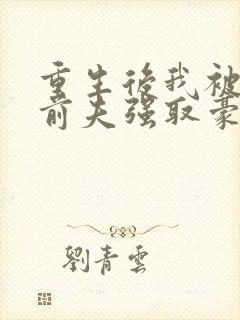 重生後我被
前夫強取豪
劉青雲